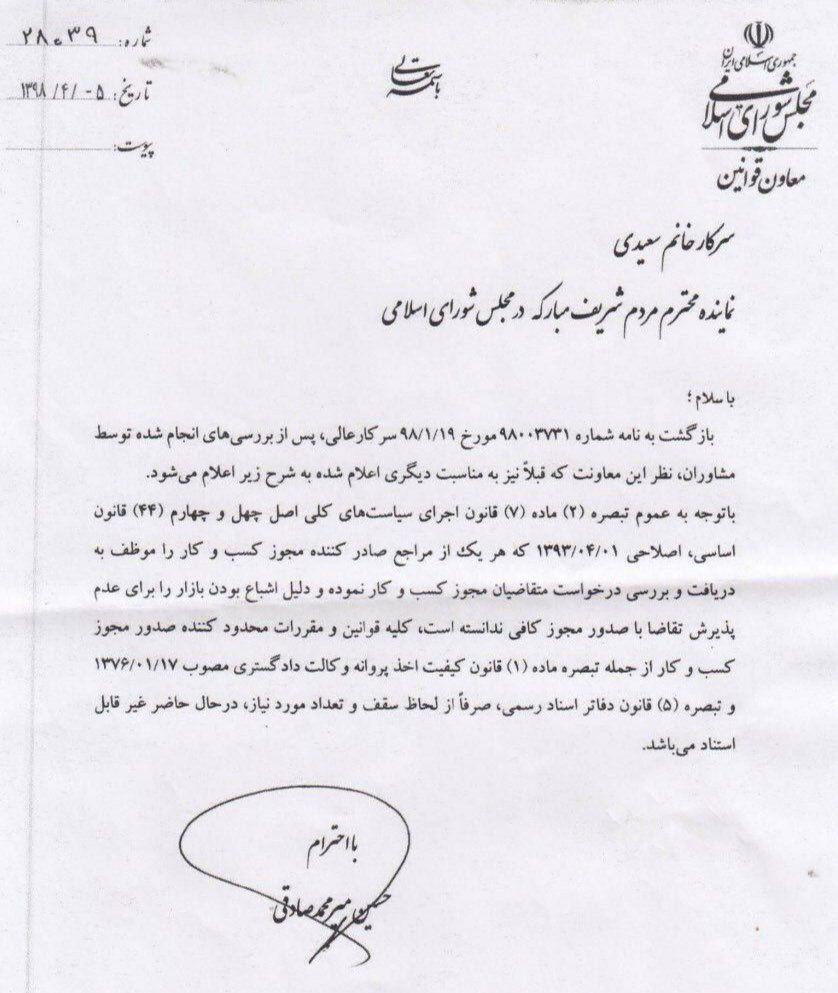 جمهوری اسلامی ایران
مجلس شورای اسلامی
معاون قوانین
باسمه تعالی
شماره: ۲۸۰۳۹
تاریخ: ۱۳۹۸/۴/۰۵
پیوست:
سرکار خانم سعیدی
نماینده محترم مردم شریف مبارکه در مجلس شورای اسلامی
با سلام؛
بازگشت به نامه شماره ۹۸۰۰۳۷۳۱ مورخ ۹۸/۱/۱۹ سرکارعالی، پس از بررسی‌های انجام شده توسط
مشاوران، نظر این معاونت که قبلاً نیز به مناسبت دیگری اعلام شده به شرح زیر اعلام می‌شود.
باتوجه به عموم تبصره (۲) ماده (۷) قانون اجرای سیاست‌های کلی اصل چهل و چهارم (۴۴) قانون
اساسی، اصلاحی ۱۳۹۳/۰۴/۰۱ که هر یک از مراجع صادر کننده مجوز کسب و کار را موظف به
دریافت و بررسی درخواست متقاضیان مجوز کسب و کار نموده و دلیل اشباع بودن بازار را برای عدم
پذیرش تقاضا یا صدور مجوز کافی ندانسته است، کلیه قوانین و مقررات محدود کننده صدور مجوز
کسب و کار از جمله تبصره ماده (۱) قانون کیفیت اخذ پروانه وکالت دادگستری مصوب ۱۳۷۶/۰۱/۱۷
و تبصره (۵) قانون دفاتر اسناد رسمی، صرفاً از لحاظ سقف و تعداد مورد نیاز، درحال حاضر غیر قابل
استناد می‌باشد.
با احترام
حسین میرمحمدصادقی